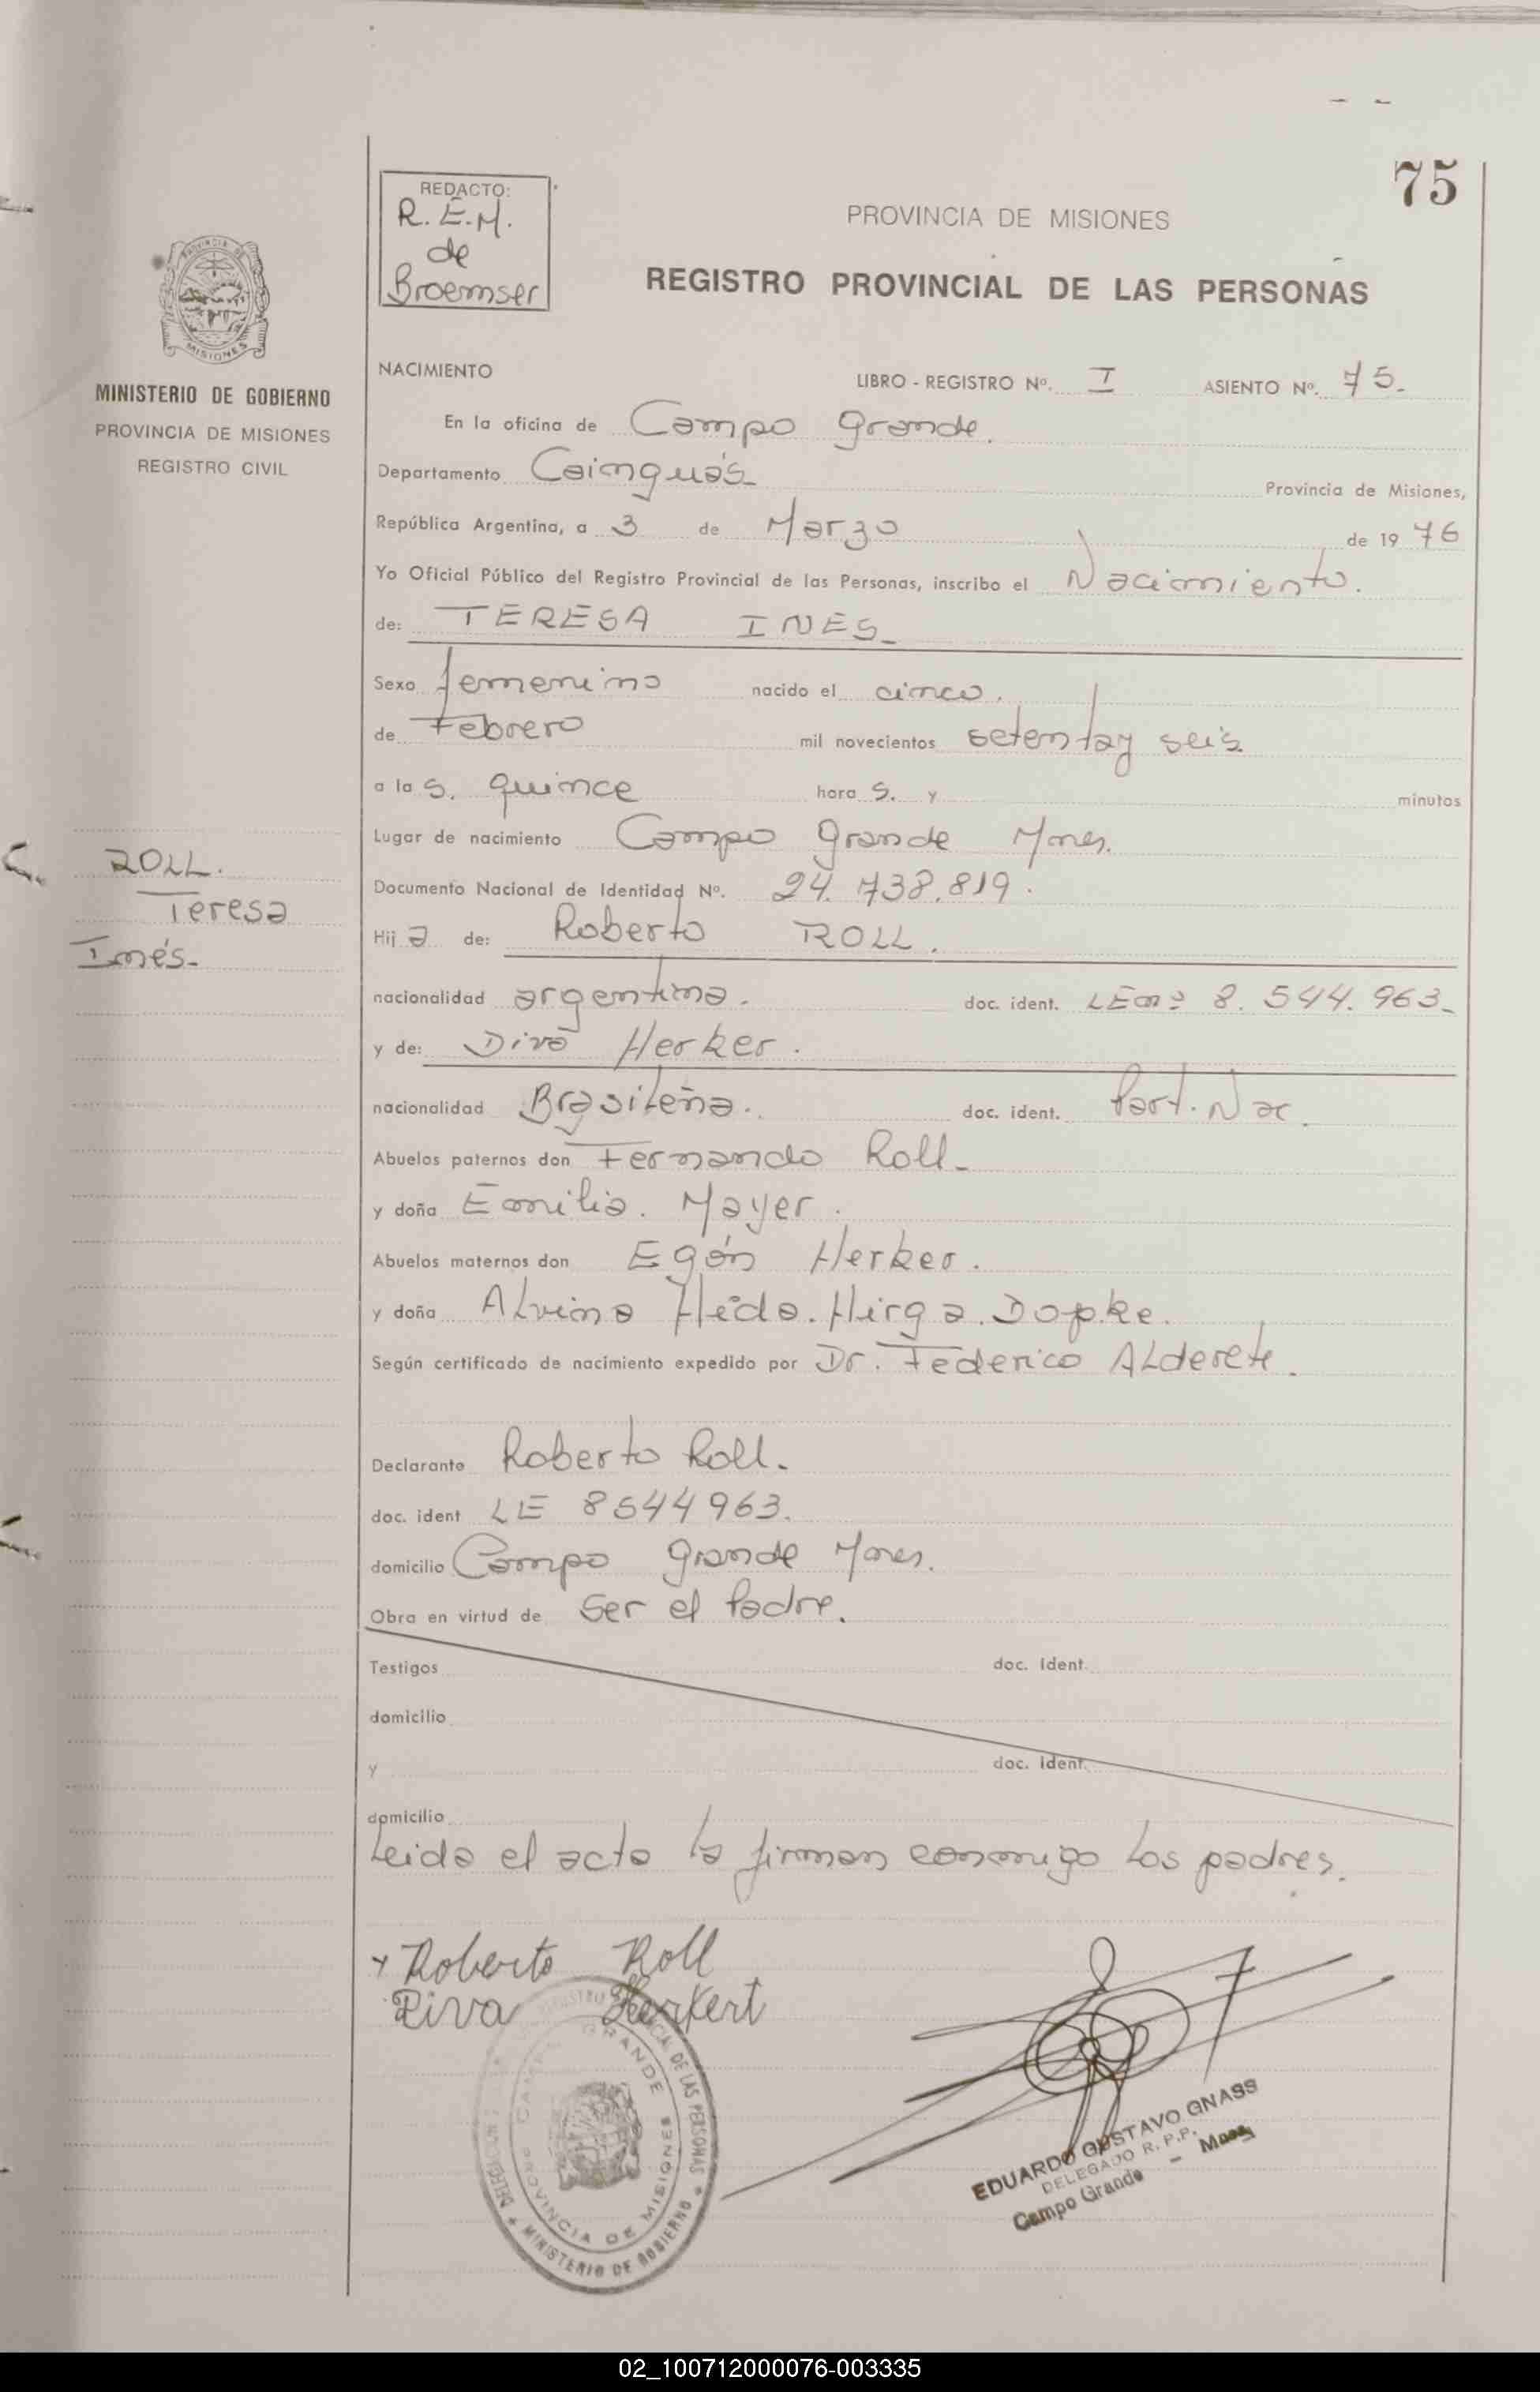 75
REDACTO:
R.E.M.
de
Broemser
PROVINCIA DE MISIONES
REGISTRO PROVINCIAL DE LAS PERSONAS
PROVINCIA DE
MISIONES
MINISTERIO DE GOBIERNO
PROVINCIA DE MISIONES
REGISTRO CIVIL
NACIMIENTO
LIBRO - REGISTRO Nº. I ASIENTO Nº. 75.
En la oficina de Campo Grande.
Departamento Cainguás Provincia de Misiones,
República Argentina, a 3 de Marzo de 1976
Yo Oficial Público del Registro Provincial de las Personas, inscribo el Nacimiento.
de: TERESA INES
Sexo femenino nacido el cinco.
de Febrero mil novecientos setentay seis
a las. quince horas. y minutos
Lugar de nacimiento Campo Grande Mnes.
Documento Nacional de Identidad Nº. 24.738.819.
Hija de: Roberto ROLL.
nacionalidad argentina. doc. ident. LEnº 8.544.963
y de: Diva Herker.
nacionalidad Brasileña. doc. ident. Part. Nac.
Abuelos paternos don Fernando Roll
y doña Emilia. Mayer.
Abuelos maternos don Egón Herker.
y doña Alvina Hirga Dopke.
Según certificado de nacimiento expedido por Dr. Federico ALderete.
Declarante Roberto Roll.
doc. ident LE 8544963.
domicilio Campo Grande Mnes.
Obra en virtud de Ser el Padre.
Testigos doc. Ident.
domicilio
y doc. ident.
domicilio
Leida el acta la firman conmigo los padres.
ROLL.
Teresa
Inés
Roberto Roll
Diva Herkert
REGISTRO PROVINCIAL DE LAS PERSONAS
MINISTERIO DE GOBIERNO
CAMPO GRANDE
PROVINCIA DE MISIONES
EDUARDO GUSTAVO GNASS
DELEGADO R. P.P.
Campo Grande - Mnes
02_100712000076-003335